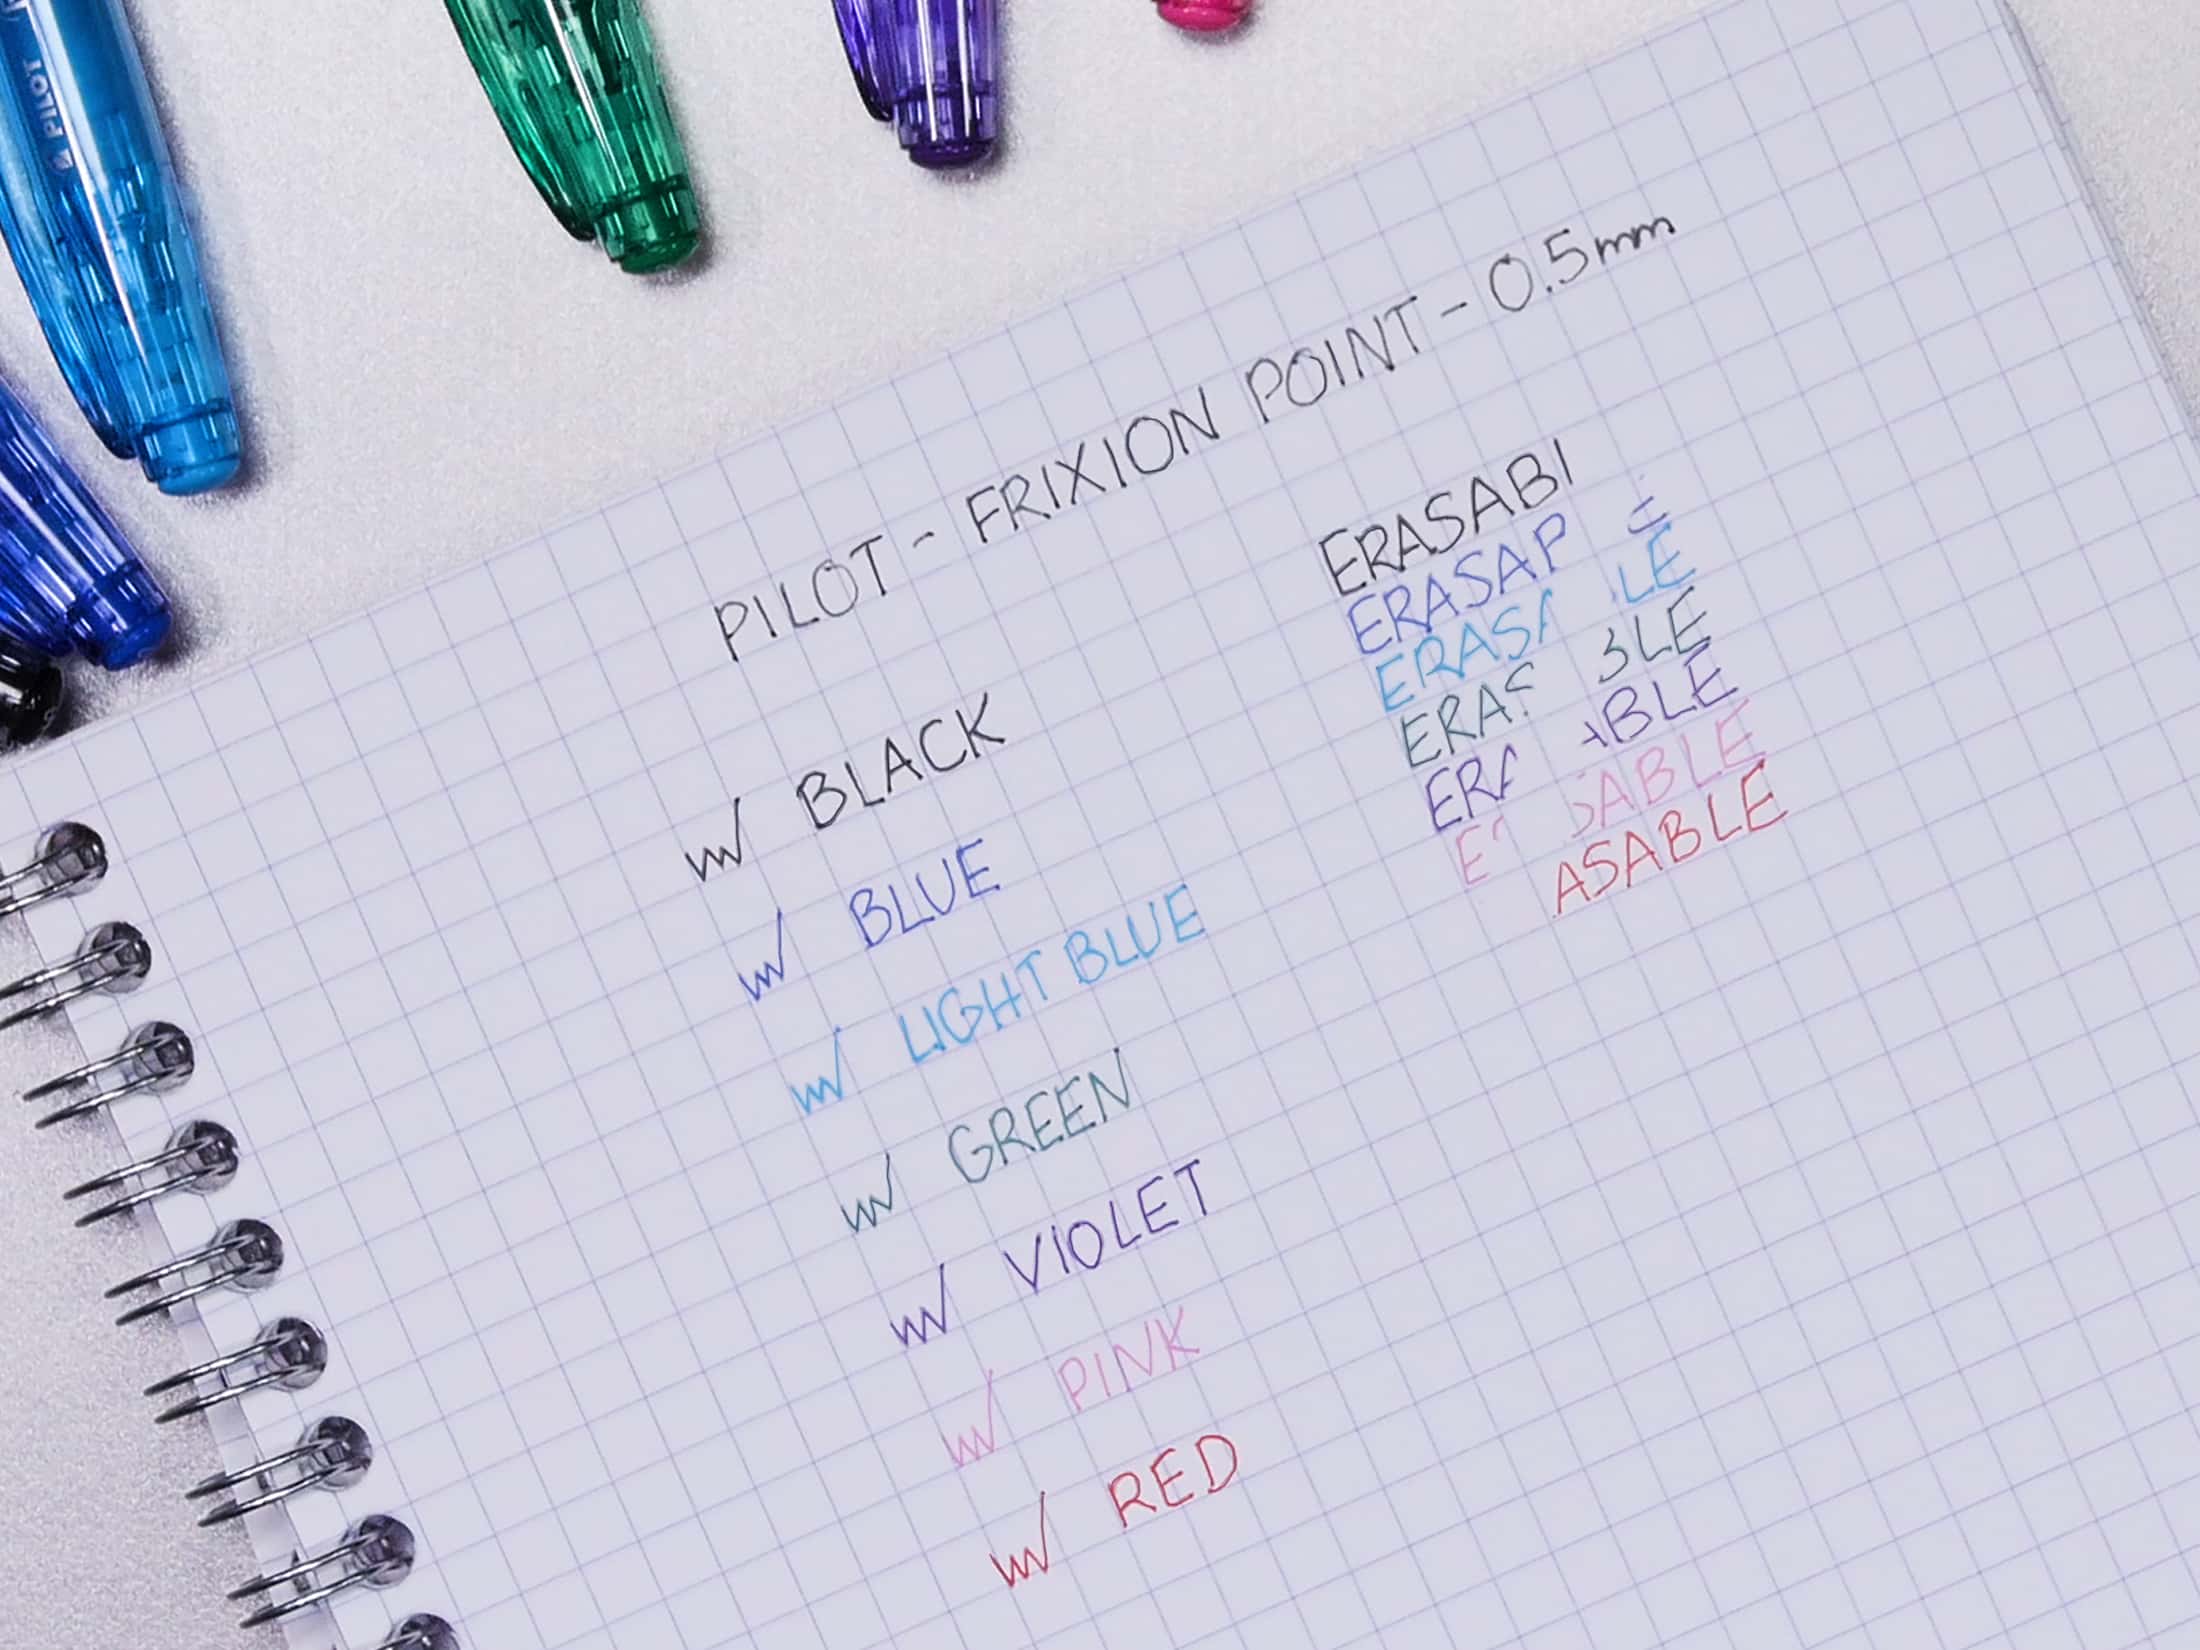 PILOT
PILOT - FRIXION POINT - 0.5mm
BLACK
BLUE
LIGHT BLUE
GREEN
VIOLET
PINK
RED
ERASABl
ERASAP E
ERASA LE
ERAS BLE
ERA ABLE
ER SABLE
ASABLE